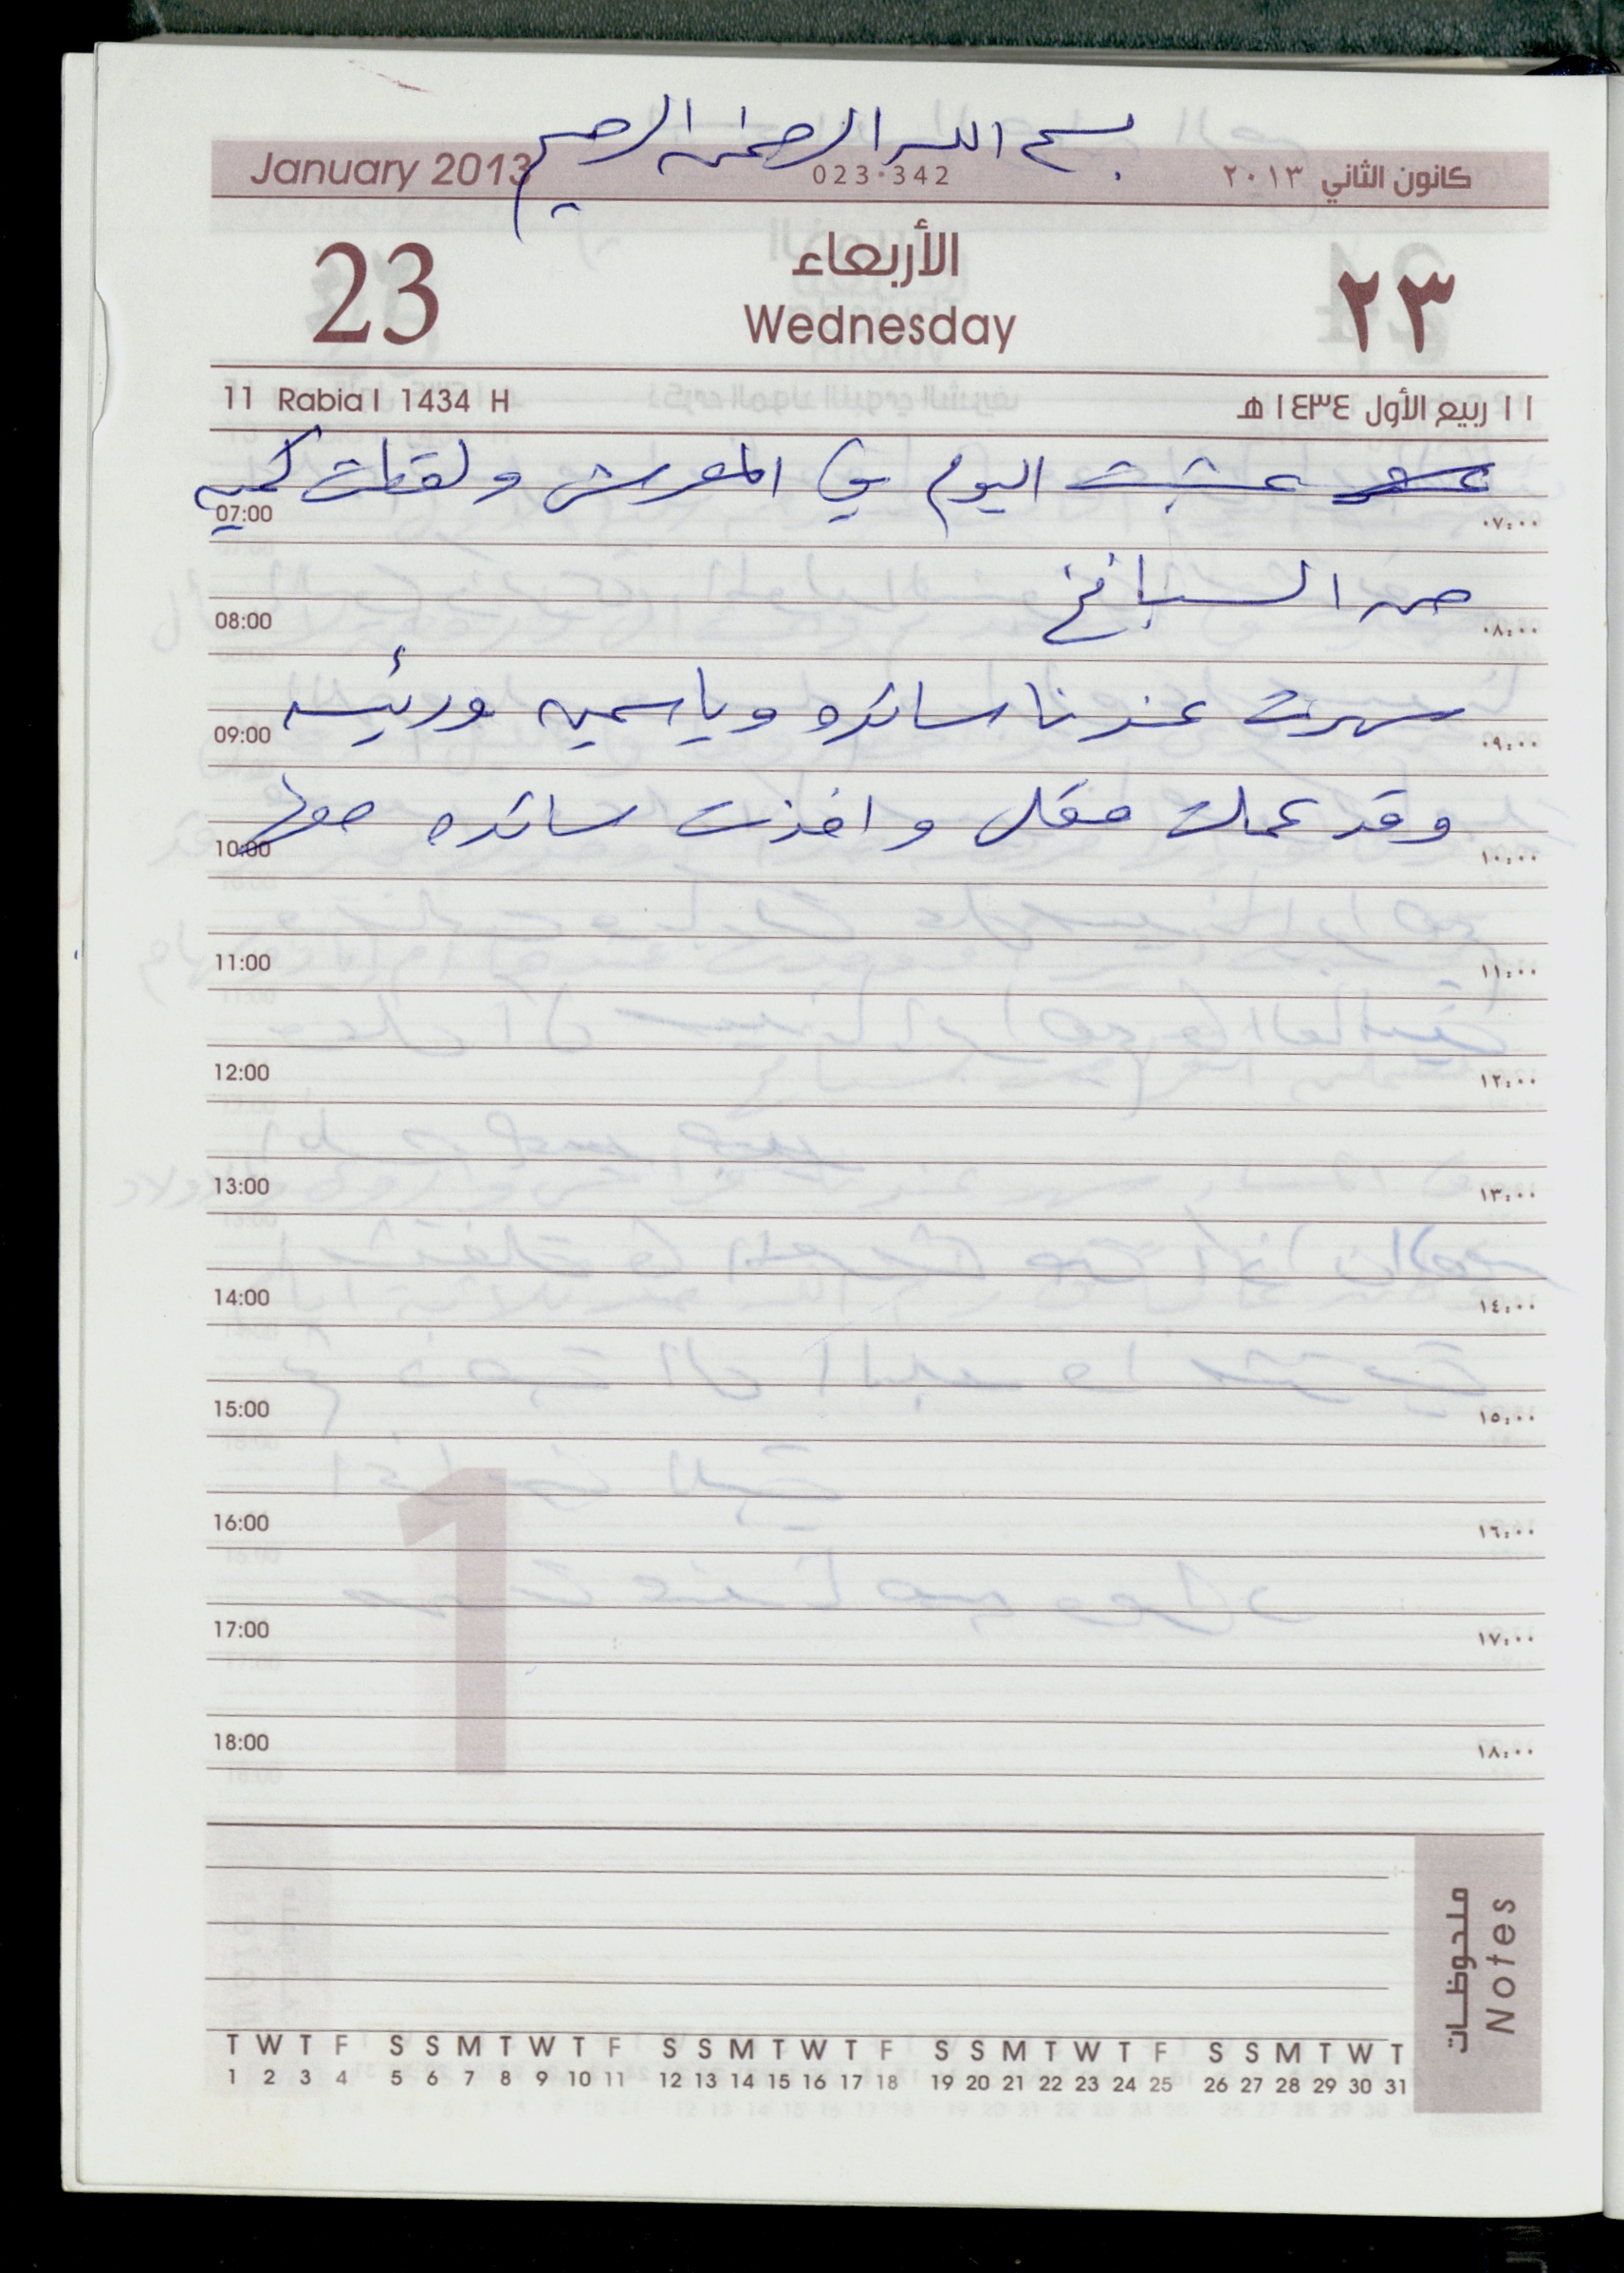 بسم الله الرحمن الرحيم
January 2013
023-342
كانون الثاني ٢٠١٣
23
الأربعاء
Wednesday
٢٣
11 Rabia I 1434 H
١١ ربيع الأول ١٤٣٤ هـ
عشبت اليوم في المعرش ولقطت كميه
07:00 ٠٧:٠٠
من السبانخ
08:00 ٠٨:٠٠
سهرت عندنا سائده وياسمين ورئيسه
09:00 ٠٩:٠٠
وقد عملت مقل واخذت سائده معها
10:00 ١٠:٠٠
11:00 ١١:٠٠
12:00 ١٢:٠٠
13:00 ١٣:٠٠
14:00 ١٤:٠٠
15:00 ١٥:٠٠
1
16:00 ١٦:٠٠
17:00 ١٧:٠٠
18:00 ١٨:٠٠
ملحوظات
Notes
T W T F S S M T W T F S S M T W T F S S M T W T F S S M T W T
1 2 3 4 5 6 7 8 9 10 11 12 13 14 15 16 17 18 19 20 21 22 23 24 25 26 27 28 29 30 31